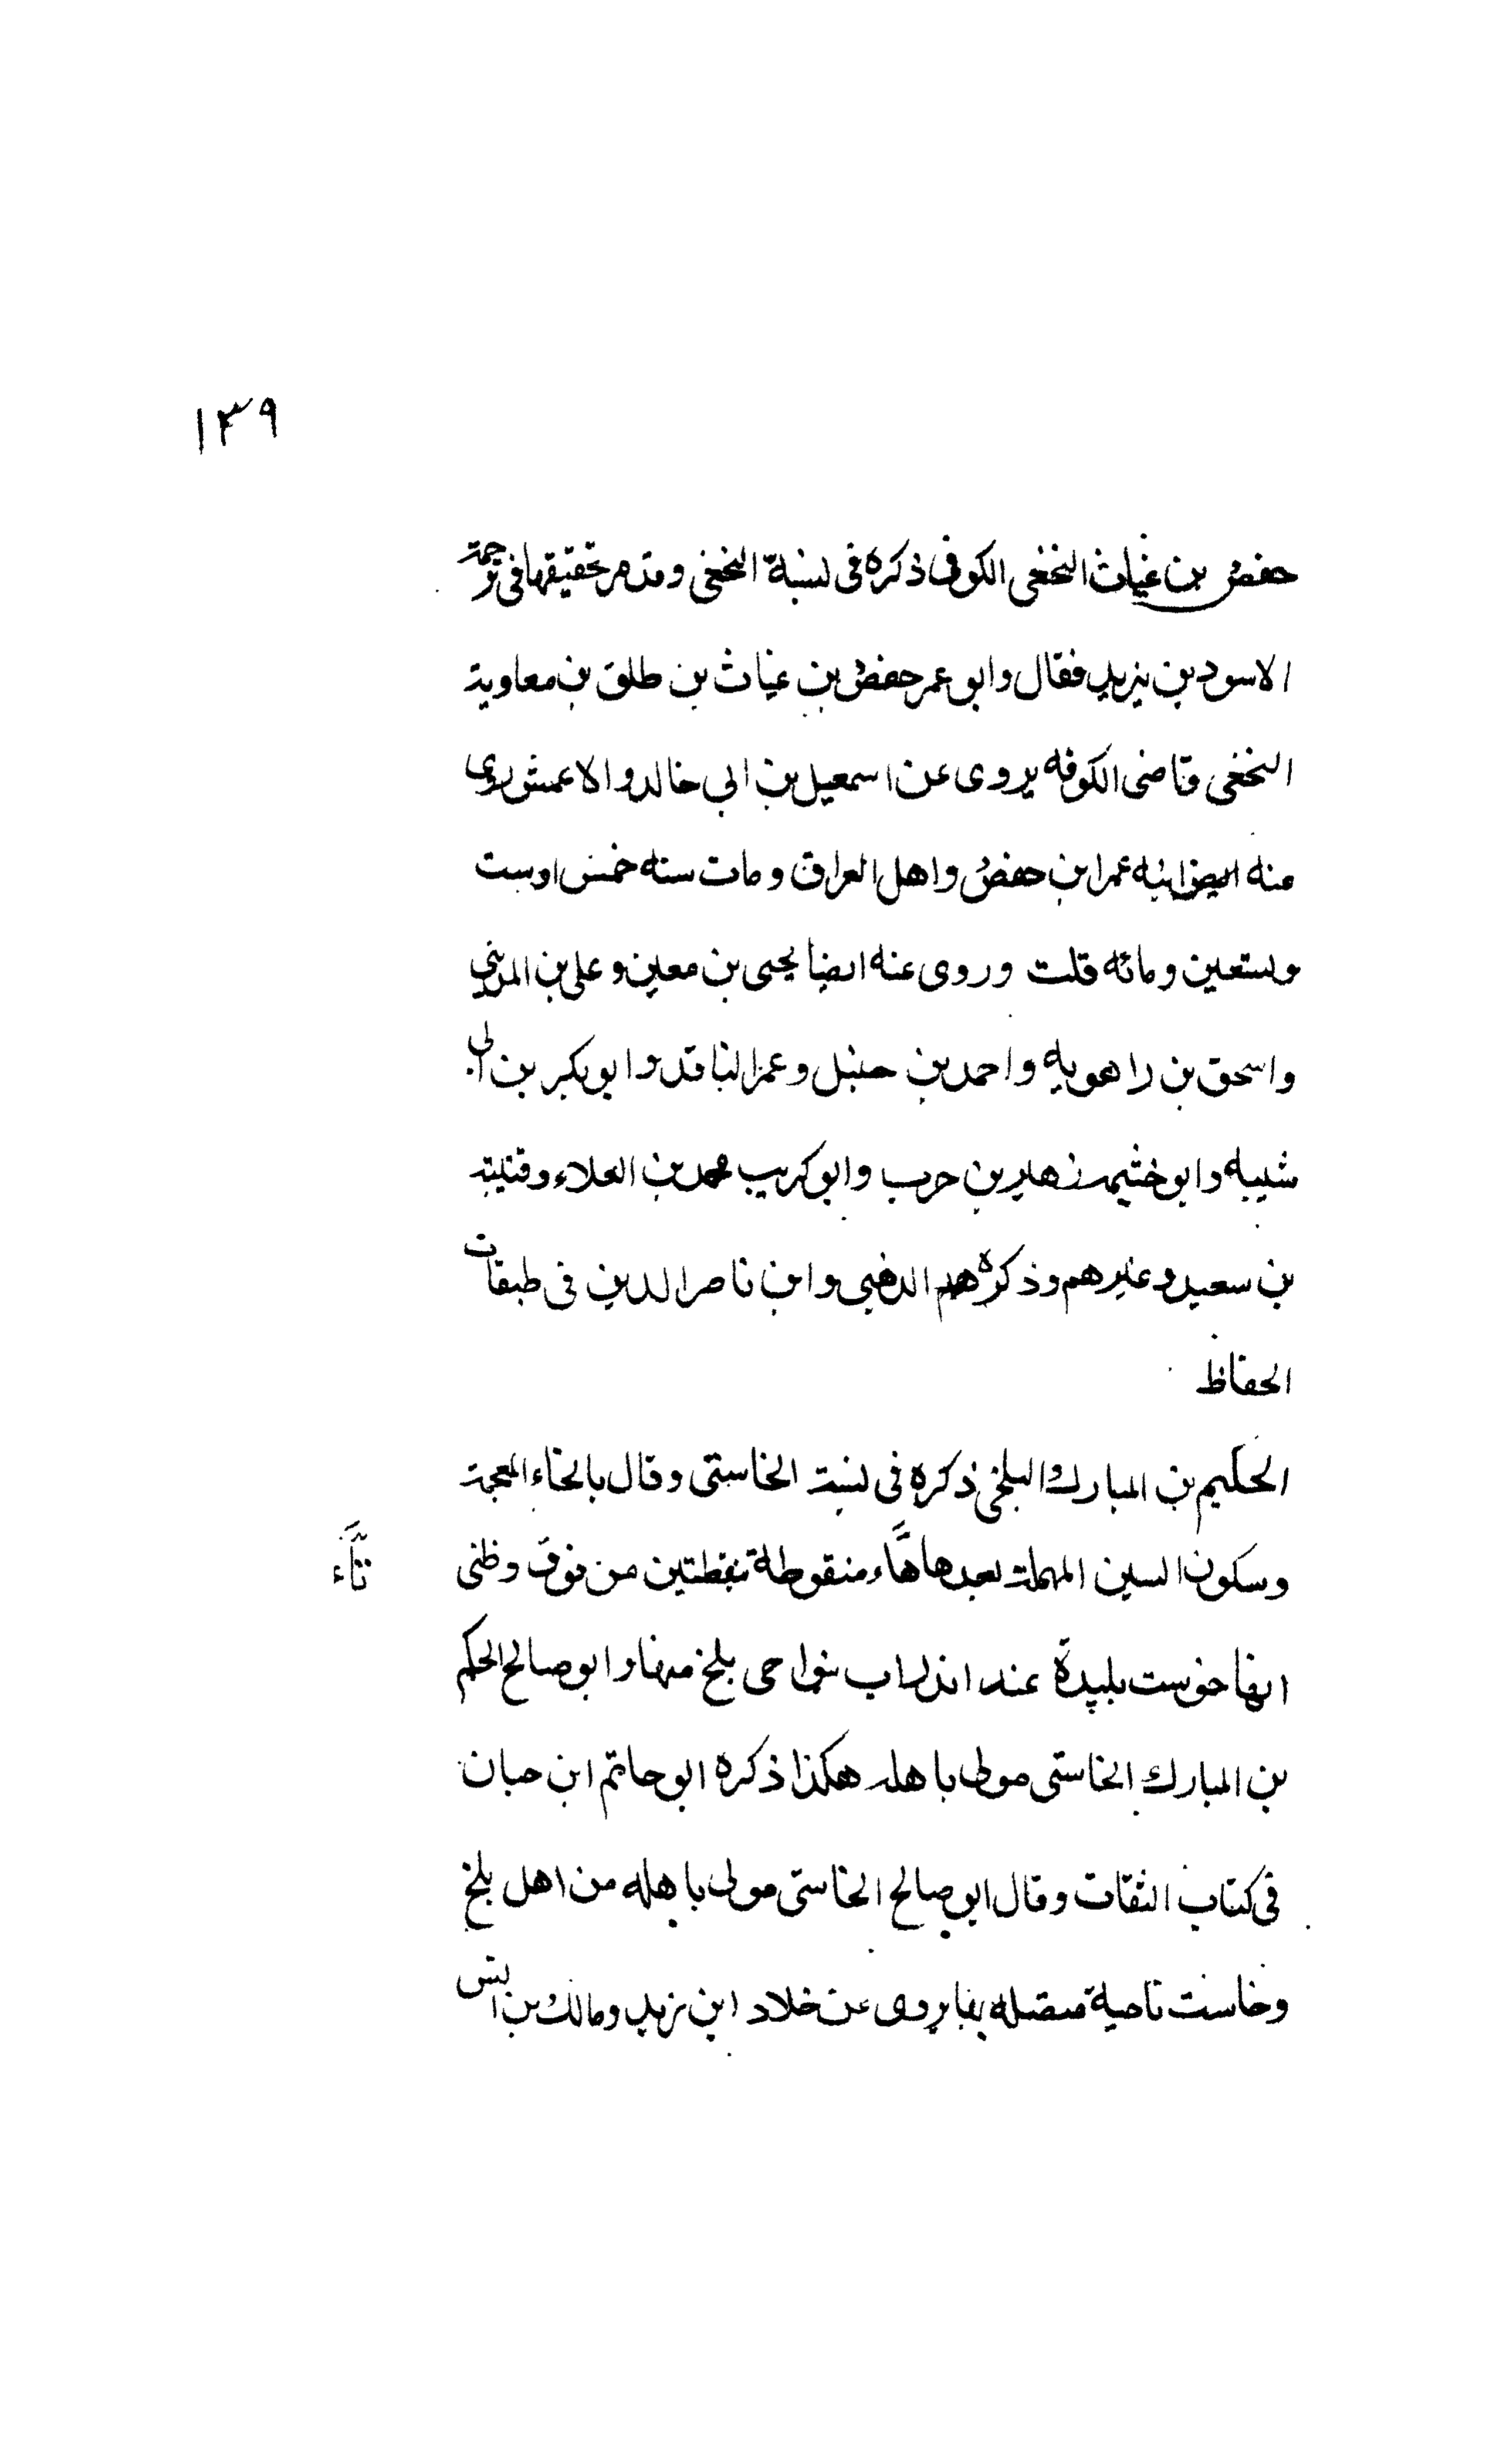 ١٣٩
حفص بن غياث النخعي الكوفي ذكره في نسبة النخعي وقد مر تحقيقها في ترجمة
الاسود بن يزيد فقال وابو عمر حفص بن غياث بن طلق بن معاوية
النخعي قاضى الكوفه يروى عن اسمعيل بن ابي خالد والاعمش روى
عنه ايضا ابنه عمر ابن حفص واهل العراق ومات سنه خمس اوست
وتسعين ومائه قلت وروى عنه ايضا يحيى بن معين وعلي بن المديني
واسحق بن راهويه واحمد بن حنبل وعمر الناقد وابو بكر بن ابي
شيبه وابو خثيمه زهير بن حرب وابو كريب محمد بن العلاء وقتيبة
بن سعيد وغيرهم وذكره الذهبي وابن ناصر الدين في طبقات
الحفاظ
الحكيم بن المبارك البلخي ذكره في نسبة الخاستى وقال بالخاء المعجمة
وسكون السين المهملة بعدها هاء منقوطة بنقطتين من فوق وظنى
تاء
انها خوست بليدة عند اندراب بنواحى بلخ منها وابو صالح الحكم
بن المبارك الخاستى مولى باهله هكذا ذكره ابو حاتم ابن حبان
في كتاب الثقات وقال ابو صالح الخاستى مولى باهله من اهل بلخ
وخاست ناحية متصله بها يروى عن خلاد ابن يزيد ومالك بن انس